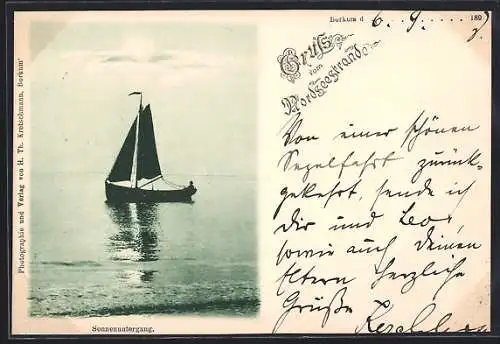 Borkum d 6. 9. 189
Gruß
vom
Nordseestrande
Von einer schönen
Segelfahrt zurück-
gekehrt, sende ich
Dir und Leo,
sowie auch Deinen
Eltern herzliche
Grüße
Photographie und Verlag von H. Th. Kretschmann, Borkum
Sonnenuntergang.